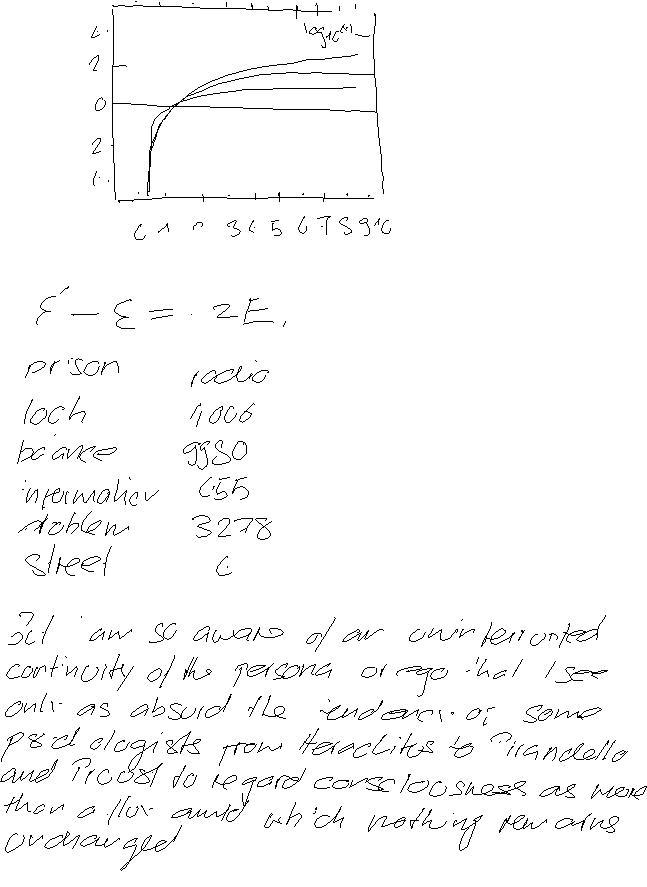 log10(x)
2
0
2
0 1 2 3 4 5 6 7 8 9 10
ε' − ε = 2E,
prison radio
loch 1006
balance 9980
information 655
problem 3278
street 6
But I am so aware of an uninterrupted
continuity of the persona or ego that I see
only as absurd the tendency of some
psychologists from Heraclitos to Pirandello
and Proust to regard consciousness as more
than a flux amid which nothing remains
unchanged